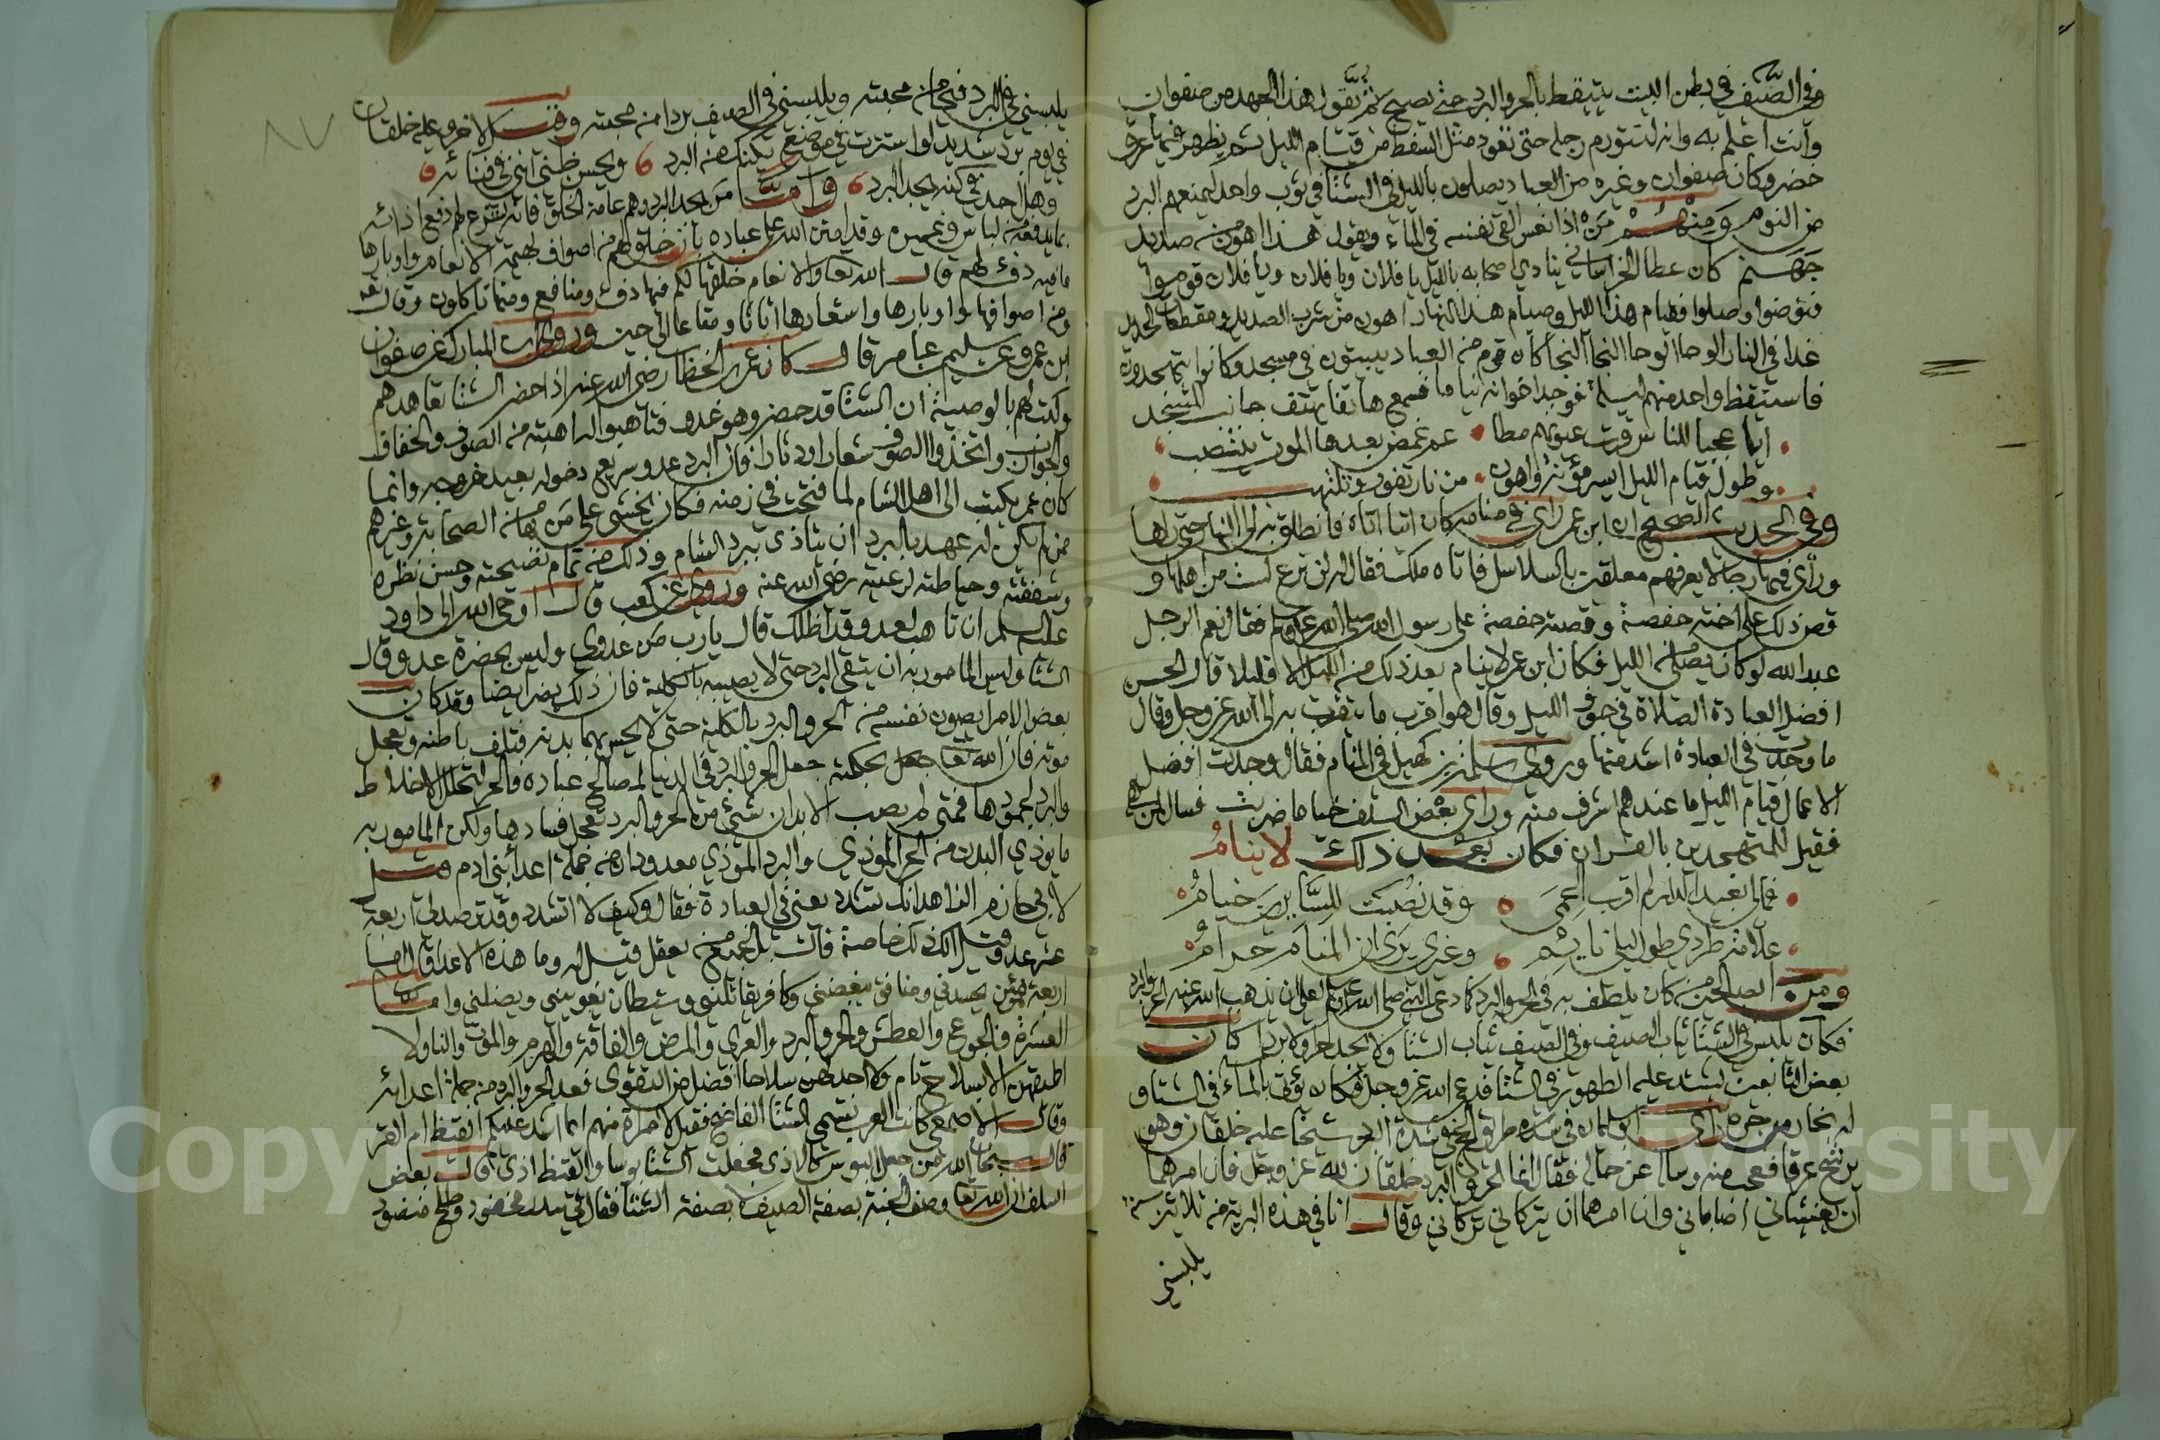 وفي الصيف في بطن البيت يتيقظ بالحر والبرد حتى يصبح ثم يقول هذا الجهد من صفوان
وانت اعلم به وانه لتتورم رجله حتى تعود مثل السفط من قيام الليل ثم يظهر فيها عروق
خضر وكان صفوان وغيره من العباد يصلون بالليل في الشتا في ثوب واحد ليمنعهم البرد
من النوم ومنهم من اذا نعس القى نفسه في الماء ويقول هذا اهون من صديد
جهنم كان عطا الخراساني ينادي اصحابه بالليل يا فلان ويا فلان ويا فلان قوموا
فتوضوا وصلوا فقيام هذا الليل وصيام هذا النهار اهون من شرب الصديد ومقطعات الحديد
غدا في النار الوحا الوحا النجا النجا كان قوم من العباد يبيتون في مسجد وكانوا يتهجدون
فاستيقظ واحد منهم ليلة فوجد اخوانه نياما فسمع هاتفا يهتف جانب المسجد
ايا عجبا للناس قرت عيونهم مطاعم غمض بعدها الموت ينتصب
وطول قيام الليل ايسر مؤنة واهون من نار تفور وتلتهب
وفي الحديث الصحيح ان ابن عمر راى في منامه كان اتيا اتاه فانطلق به الى النار حتى راها
وراى فيها رجالا يعرفهم معلقين بالسلاسل فاتاه ملك فقال له لن ترع لست من اهلها و
قص ذلك على اخته حفصة وقصته حفصة على رسول الله صلى الله عليه وسلم فقال نعم الرجل
عبد الله لو كان يصلي من الليل فكان ابن عمر لا ينام بعد ذلك من الليل الا قليلا قال الحسن
افضل العبادة الصلاة في جوف الليل وقال هو اقرب ما يتقرب به الى الله عز وجل وقال
ما وجدت في العبادة اشد منها وروي سلمة بن كهيل في المنام فقال وجدت افضل
الاعمال قيام الليل ما عندهم اشرف منه وراى بعض السلف خياما ضربت فسال لمن هي
فقيل للمتهجدين بالقران فكان بعد ذلك لا ينام
فما لي بعيد الدار لم اقرب الحمى وقد نصبت للساهرين خيام
علامة طردي طول ليلي نايم وغيري يرى ان المنام حرام
ومن الصالحين من كان يلطف به في الحر والبرد كما دعى النبي صلى الله عليه وسلم لعلي ان يذهب الله عنه الحر والبرد
فكان يلبس في الشتا ثياب الصيف وفي الصيف ثياب الشتا ولا يجد حرا ولا بردا كان
بعض التابعين يشتد عليه الطهور في الشتا فدعى الله عز وجل فكان يؤتى بالماء في الشتا و
له بخار من حره راى ابو سليمان في سيره طريق الحج في شدة البرد شيخا عليه خلقان وهو
يرشح عرقا فعجب منه وساله عن حاله فقال انما الحر والبرد خلقان لله عز وجل فان امرهما
ان يغشياني اصاباني وان امرهما ان يتركاني تركاني وقال انا في هذه البرية من ثلاثين سنة
يلبسني
يلبسني في البرد فيحا من محبته ويلبسني في الصيف بردا من محبته وقيل لاخر وعليه خلقان
في يوم برد شديد لو استترت في موضع يكنك من البرد ويحسن ظني انني في فنائه
وهل احد في كنه يجد البرد وامّا من يجد البرد وهم عامة الخلق فانه يشرع لهم دفع اذاه
بما يدفعه من لباس وغيره وقد امتن الله على عباده بان خلق لهم من اصواف بهيمة الانعام واوبارها
ما فيه دفء لهم قال الله تعالى والانعام خلقها لكم فيها دفء ومنافع ومنها تاكلون وقال تعالى
ومن اصوافها واوبارها واشعارها اثاثا ومتاعا الى حين وروى ابن المبارك عن صفوان
ابن عمرو عن سليم بن عامر قال كان عمر بن الخطاب رضي الله عنه اذا حضر الشتا تعاهدهم
وكتب لهم بالوصية ان الشتا قد حضر وهو عدو فتاهبوا له اهبته من الصوف والخفاف
والجوارب واتخذوا الصوف شعارا ودثارا فان البرد عدو سريع دخوله بعيد خروجه وانما
كان عمر يكتب الى اهل الشام لما فتحت في زمنه فكان يخشى على من بها من الصحابة وغيرهم
ممن لم يكن له عهد بالبرد ان يتاذى ببرد الشام وذلك من تمام نصيحته وحسن نظره
وشفقته وحياطته لرعيته رضي الله عنه وروي عن كعب قال اوحى الله الى داود
عليه السلام ان تاهب لعدو قد اظلك قال يا رب من عدوي وليس بحضرة عدو قال
الشتا وليس المامور به ان يتقي البرد حتى لا يصيبه بالكلية فان ذلك يضر ايضا وقد كان
بعض الامرا يصون نفسه من الحر والبرد بالكلية حتى لا يحس بهما بدنه فتلف باطنه وتعجل
موته فان الله تعالى بحكمته جعل الحر والبرد في الدنيا لمصالح عباده فالحر لتحلل الاخلاط
والبرد لجمودها فمتى لم يصب الابدان شيء من الحر والبرد تعجل فسادها ولكن المامور به
ما يوذي البدن من الحر الموذي والبرد الموذي معدودان من جملة اعدا بني ادم قيل
لابي حازم الزاهد انك تشدد يعني في العبادة فقال وكيف لا اتشدد وقد ترصد لي اربعة
عشر عدوا قيل لك ذلك خاصة قال بل لجميع من يعقل قيل له وما هذه الاعدا قال اما
اربعة فمؤمن يحسدني ومنافق يبغضني وكافر يقاتلني وشيطان يغويني ويضلني واما
العشرة فالجوع والعطش والحر والبرد والعري والمرض والفاقة والهرم والموت والنار ولا
اطيقهن الا بسلاح تام ولا اجد لهن سلاحا افضل من التقوى فعد الحر والبرد من جملة اعدائه
وقال الاصمعي كانت العرب تسمي الشتا الفاضح فقيل لامراة منهم ايما اشد عليكم القيظ ام القر
قالت سبحان الله من جعل البوس كالاذى فجعلت الشتا بوسا والقيظ اذى قال بعض
السلف ان الله تعالى وصف الجنة بصفة الصيف لا بصفة الشتا فقال في سدر مخضود وطلح منضود